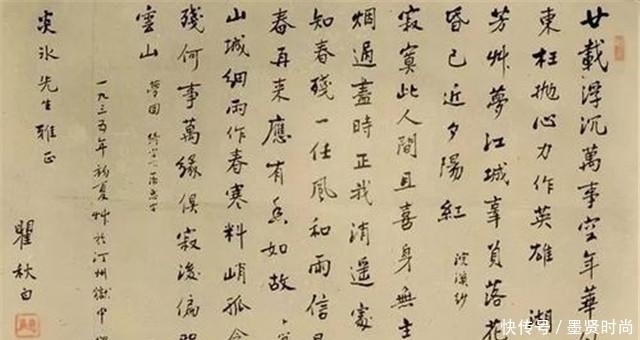 廿載浮沉萬事空年華
東枉拋心力作英雄 湖
芳艸夢江城辜負落花
昏已近夕陽紅 浣溪紗
寂寞此人間且喜身無主
烟過盡時正我消遙處
知春殘一任風和雨信
春再來應有香如故
山城細雨作春寒料峭孤衾
殘何事萬緣俱寂後偏
雲山 夢回
一九三五年初夏艸於汀州獄中
炎冰先生雅正
瞿秋白
快传号/墨贤时尚